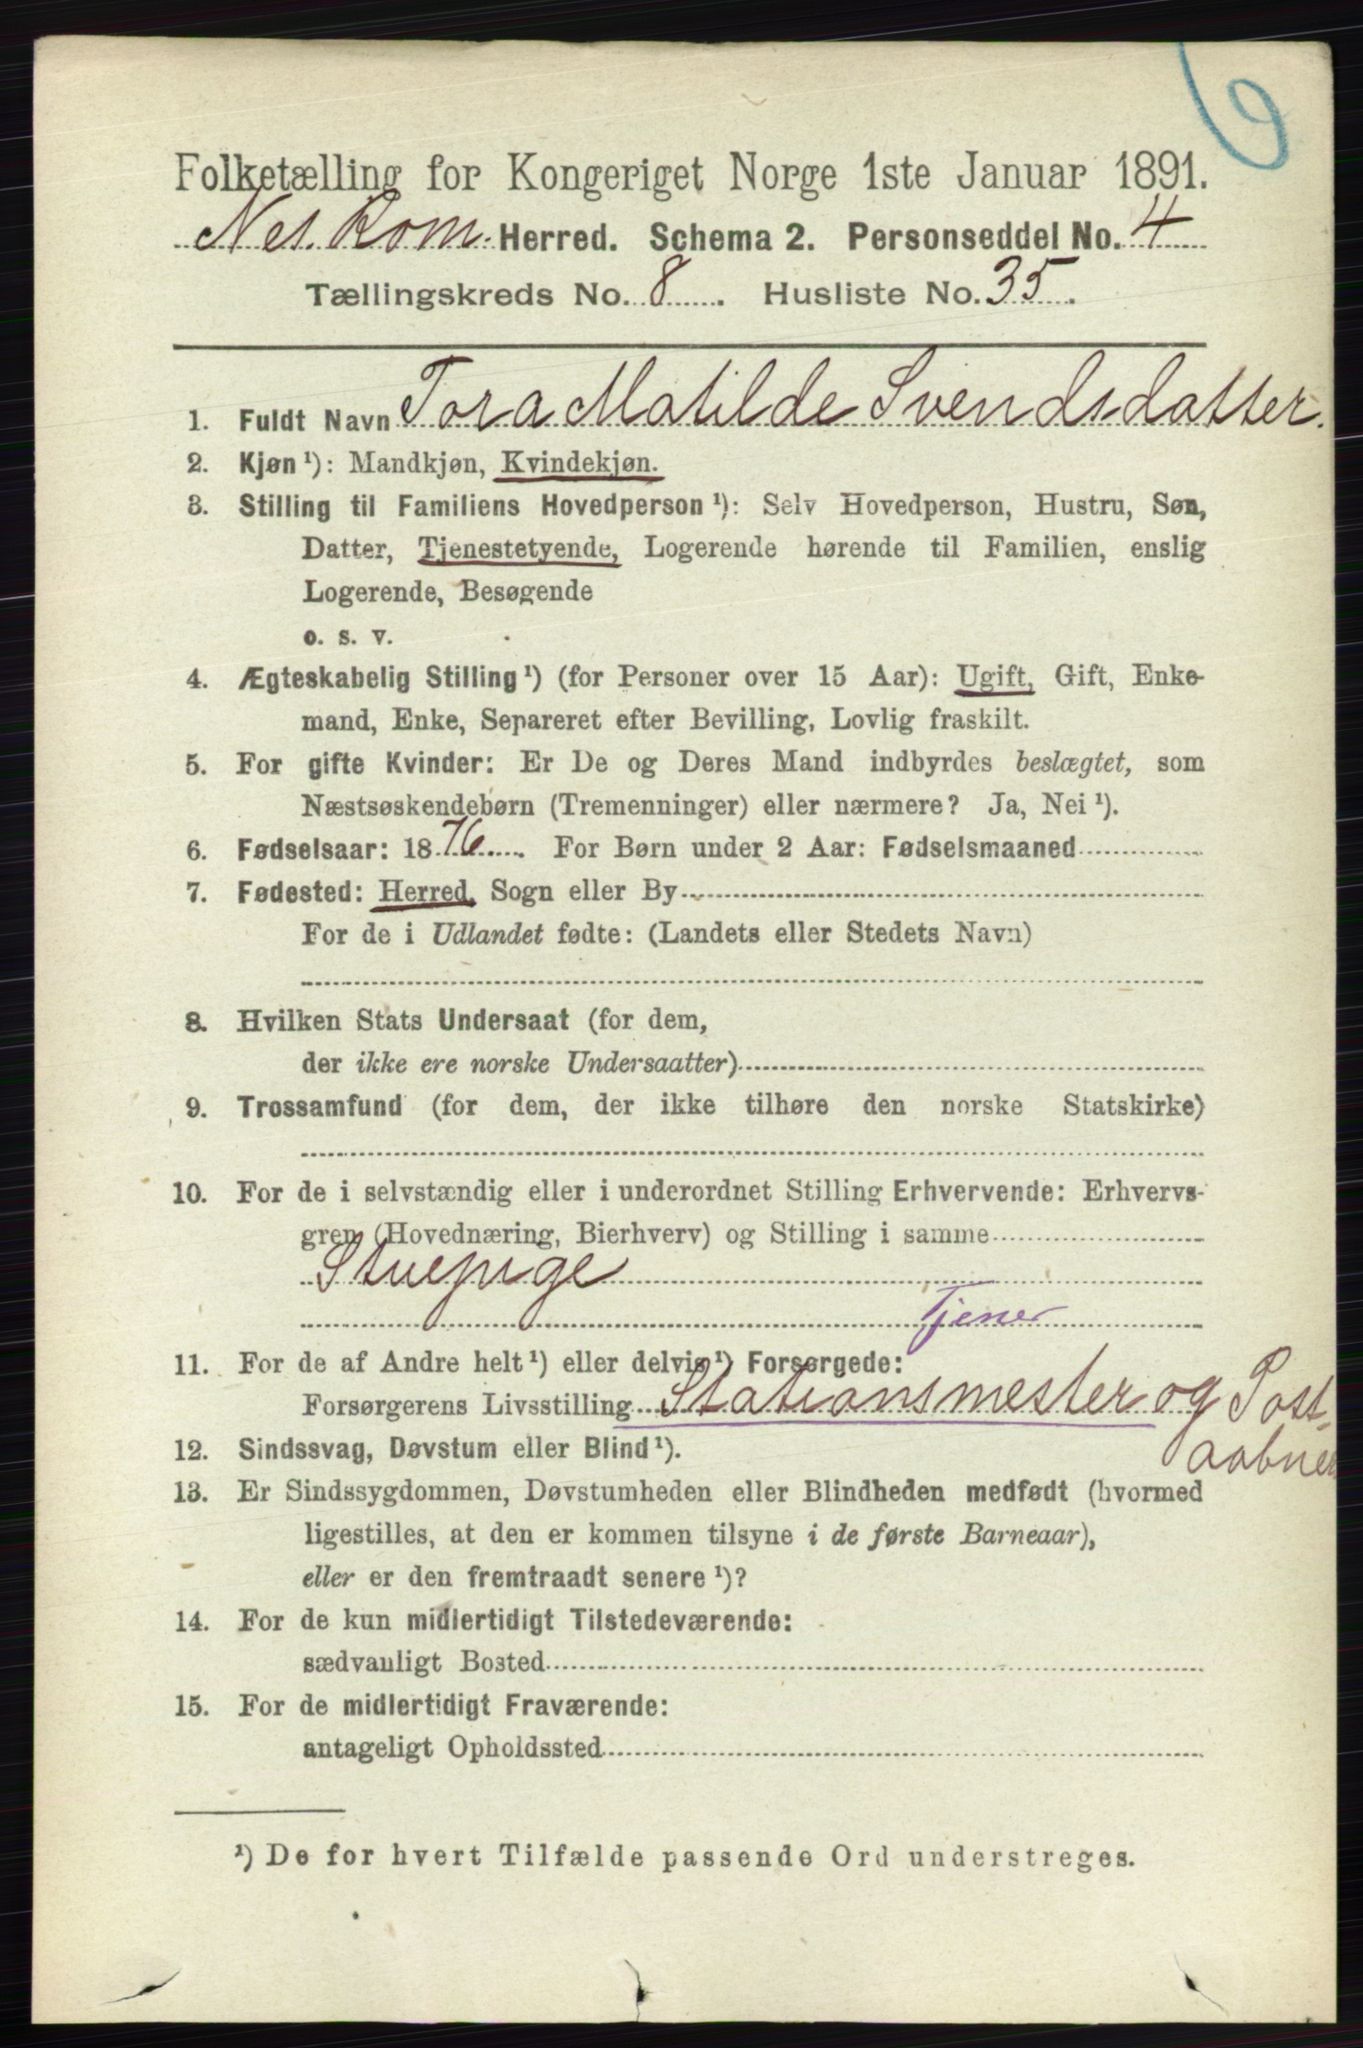 6
Folketælling for Kongeriget Norge 1ste Januar 1891.
Nes. Rom. Herred. Schema 2. Personseddel No. 4
Tællingskreds No. 8. Husliste No. 35.
1. Fuldt Navn Tora Matilde Svendsdatter.
2. Kjøn ¹): Mandkjøn, Kvindekjøn.
3. Stilling til Familiens Hovedperson ¹): Selv Hovedperson, Hustru, Søn,
Datter, Tjenestetyende, Logerende hørende til Familien, enslig
Logerende, Besøgende
o. s. v.
4. Ægteskabelig Stilling ¹) (for Personer over 15 Aar): Ugift, Gift, Enke-
mand, Enke, Separeret efter Bevilling, Lovlig fraskilt.
5. For gifte Kvinder: Er De og Deres Mand indbyrdes beslægtet, som
Næstsøskendebørn (Tremenninger) eller nærmere? Ja, Nei ¹).
6. Fødselsaar: 1876. For Børn under 2 Aar: Fødselsmaaned
7. Fødested: Herred, Sogn eller By
For de i Udlandet fødte: (Landets eller Stedets Navn)
8. Hvilken Stats Undersaat (for dem,
der ikke ere norske Undersaatter)
9. Trossamfund (for dem, der ikke tilhøre den norske Statskirke)
10. For de i selvstændig eller i underordnet Stilling Erhvervende: Erhvervs-
gren (Hovednæring, Bierhverv) og Stilling i samme
Stuepige
Tjener
11. For de af Andre helt ¹) eller delvis ¹) Forsørgede:
Forsørgerens Livsstilling Stationsmester og Post-
aabner
12. Sindssvag, Døvstum eller Blind ¹).
13. Er Sindssygdommen, Døvstumheden eller Blindheden medfødt (hvormed
ligestilles, at den er kommen tilsyne i de første Barneaar),
eller er den fremtraadt senere ¹)?
14. For de kun midlertidigt Tilstedeværende:
sædvanligt Bosted
15. For de midlertidigt Fraværende:
antageligt Opholdssted
¹) De for hvert Tilfælde passende Ord understreges.